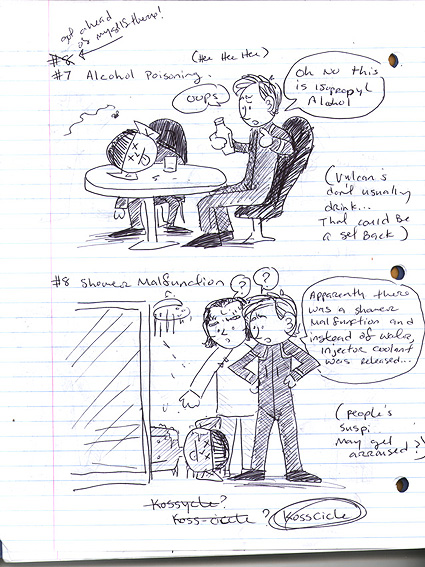 got ahead
of myself there!
#8
#7 Alcohol Poisoning.
(Hee Hee Hee)
oops
Oh no this
is isopropyl
Alohol
(Vulcan's
don't usually
drink...
That could Be
a set Back)
#8 Shower Malfunction
?
?
Apparently there
was a shower
Malfunction and
instead of water,
injector coolant
was released...
(People's
suspi..
May get
arroused?)
Kossycle?
Koss-cicle?
Kosscicle